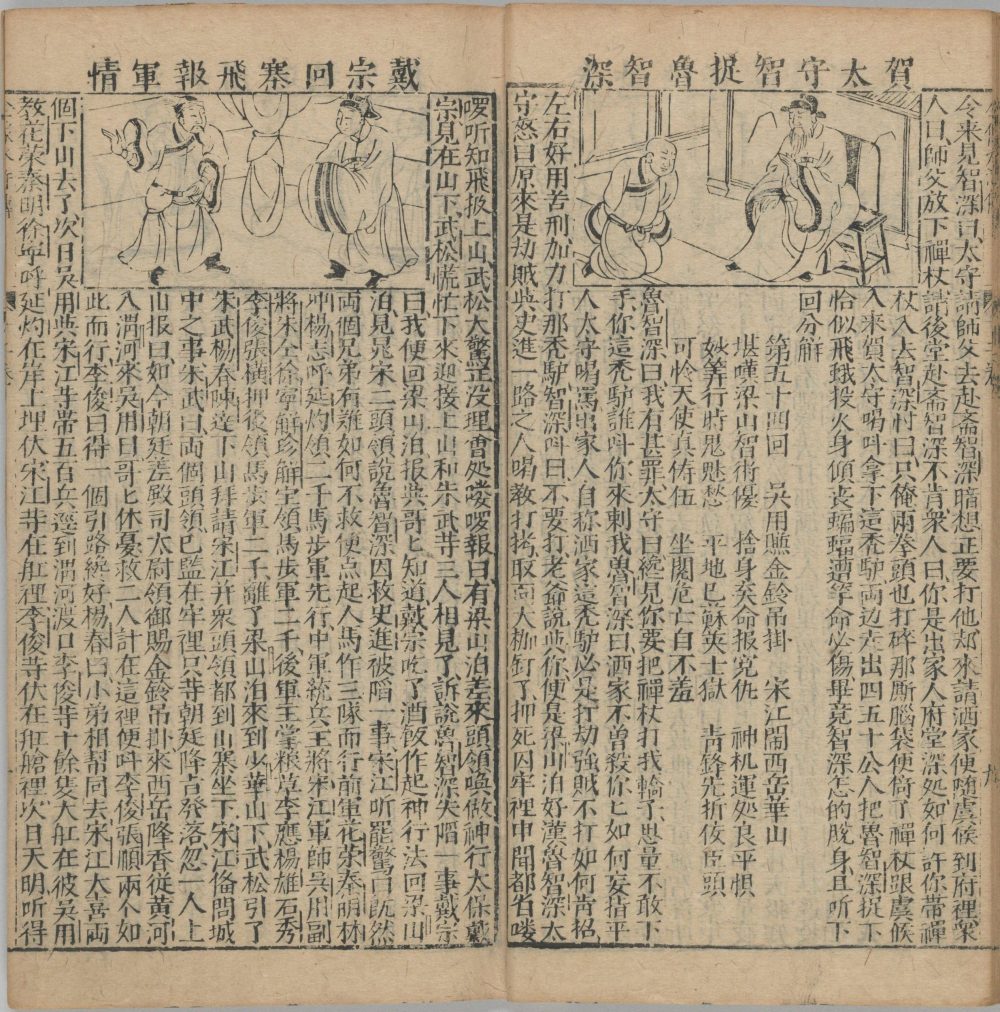 賀太守智捉魯智深
令来見智深曰太守請師父去赴斋智深暗想正要打他却來請洒家便随虞候到府裡衆
人曰師父放下禪杖請後堂赴斋智深不肯衆人曰你是出家人府堂深処如何許你帯禪
杖入去智深忖曰只俺兩拳頭也打碎那厮腦袋便倚了禪杖跟虞候
入來賀太守喝叫拿下這秃驴兩边走出四五十公人把魯智深捉下
恰似飛蛾投火身傾丧蝙蝠遭竿命必傷畢竟智深志的脫身且听下
回分觧
第五十四回 吳用賺金鈴吊掛 宋江鬧西岳華山
堪嘆梁山智術優 捨身矣命报寃仇 神机運処良平惧
妙筭行時鬼魅愁 平地已蘇英士獄 青鋒先折佞臣頭
可怜天使真侍伍 坐閣危亡自不羞
魯智深曰我有甚罪太守曰緃見你要把禪杖打我轎子思量不敢下
手你這秃驴誰叫你來刺我魯智深曰洒家不曾殺你匕如何妄指平
人太守喝罵出家人自称洒家這秃驴必是打劫強賊不打如何肯招
左右好用苦刑加力打那秃驴智深叫曰不要打老爺說與你便是梁山泊好漢魯智深太
守怒曰原來是劫賊與史進一路之人喝教打拷取面大枷釘了押死囚牢裡中間都省喽
戴宗回寨飛報軍情
啰听知飛报上山武松大驚正没理會処喽啰報曰有梁山泊差來頭領喚做神行太保戴
宗見在山下武松慌忙下來迎接上山和朱武等三人相見了訴說魯智深失陷一事戴宗
曰我便回梁山泊报與哥匕知道戴宗吃了酒飯作起神行法回梁山
泊見晁宋二頭領說魯智深因救史進被陷一事宋江听罷驚曰既然
両個兄弟有難如何不救便点起人馬作三隊而行前軍花荣秦明林
冲楊志呼延灼領二千馬步軍先行中軍統兵王將宋江軍師吳用副
將朱仝徐寧觧珍觧宝領馬步軍二千後軍王掌粮草李應楊雄石秀
李俊張横押後領馬步軍二千離了梁山泊來到少華山下武松引了
朱武楊春陳達下山拜請宋江并衆頭領都到山寨坐下宋江俻問城
中之事朱武曰両個頭領已監在牢裡只等朝廷降旨發落忽一人上
山报曰如今朝廷差殿司太尉領御賜金鈴吊掛來西岳降香従黄河
入渭河來吳用曰哥匕休憂救二人計在這裡便叫李俊張順兩个如
此而行李俊曰得一個引路緃好楊春曰小弟相幇同去宋江大喜両
個下山去了次日吳用與宋江等帯五百兵逕到渭河渡口李俊等十餘隻大舡在彼吳用
教花荣秦明徐寧呼延灼在岸上埋伏宋江等在舡裡李俊等伏在舡艙裡次日天明听得